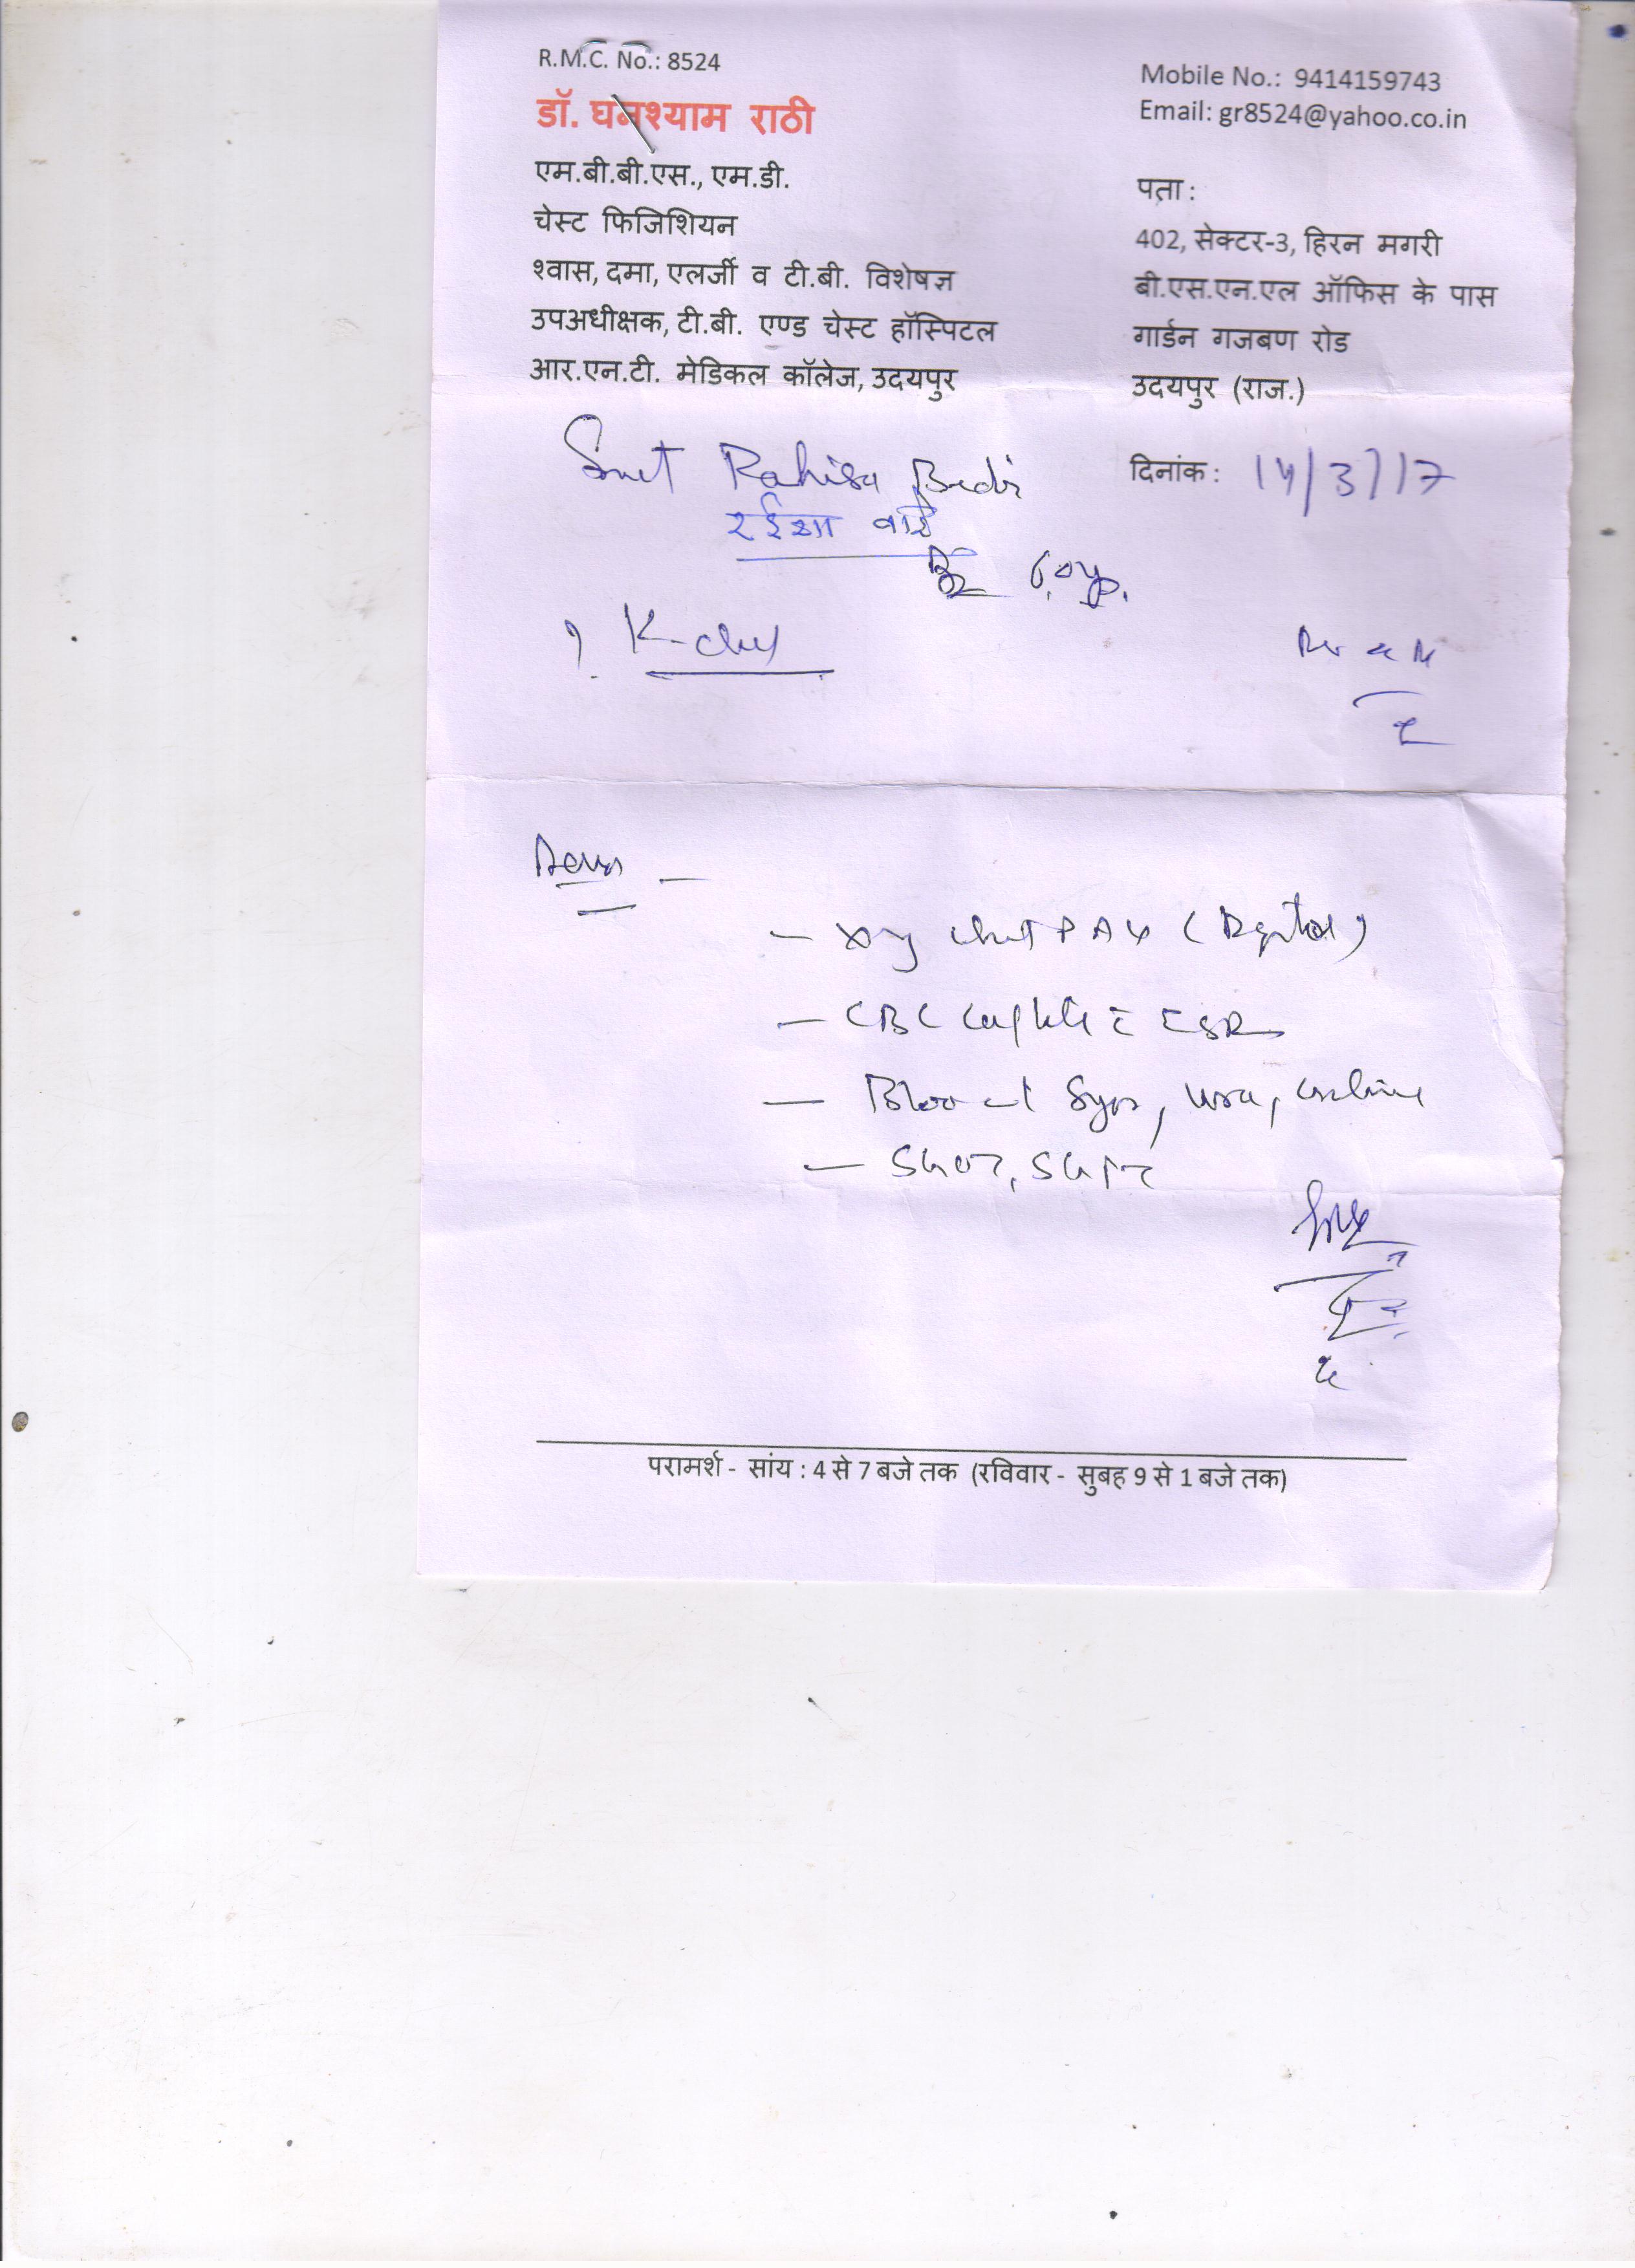 R.M.C. No.: 8524
डॉ. घनश्याम राठी
एम.बी.बी.एस., एम.डी.
चेस्ट फिजिशियन
श्वास, दमा, एलर्जी व टी.बी. विशेषज्ञ
उपअधीक्षक, टी.बी. एण्ड चेस्ट हॉस्पिटल
आर.एन.टी. मेडिकल कॉलेज, उदयपुर
Mobile No.: 9414159743
Email: gr8524@yahoo.co.in
पता :
402, सेक्टर-3, हिरन मगरी
बी.एस.एन.एल ऑफिस के पास
गार्डन गजबण रोड
उदयपुर (राज.)
दिनांक : 14/3/17
Smt Rahisa
? K-chest
- Xray chest PA (Digital)
- CBC complete ESR
- Blood Sugar, urea, creatinine
- SGOT, SGPT
परामर्श - सांय : 4 से 7 बजे तक (रविवार - सुबह 9 से 1 बजे तक)